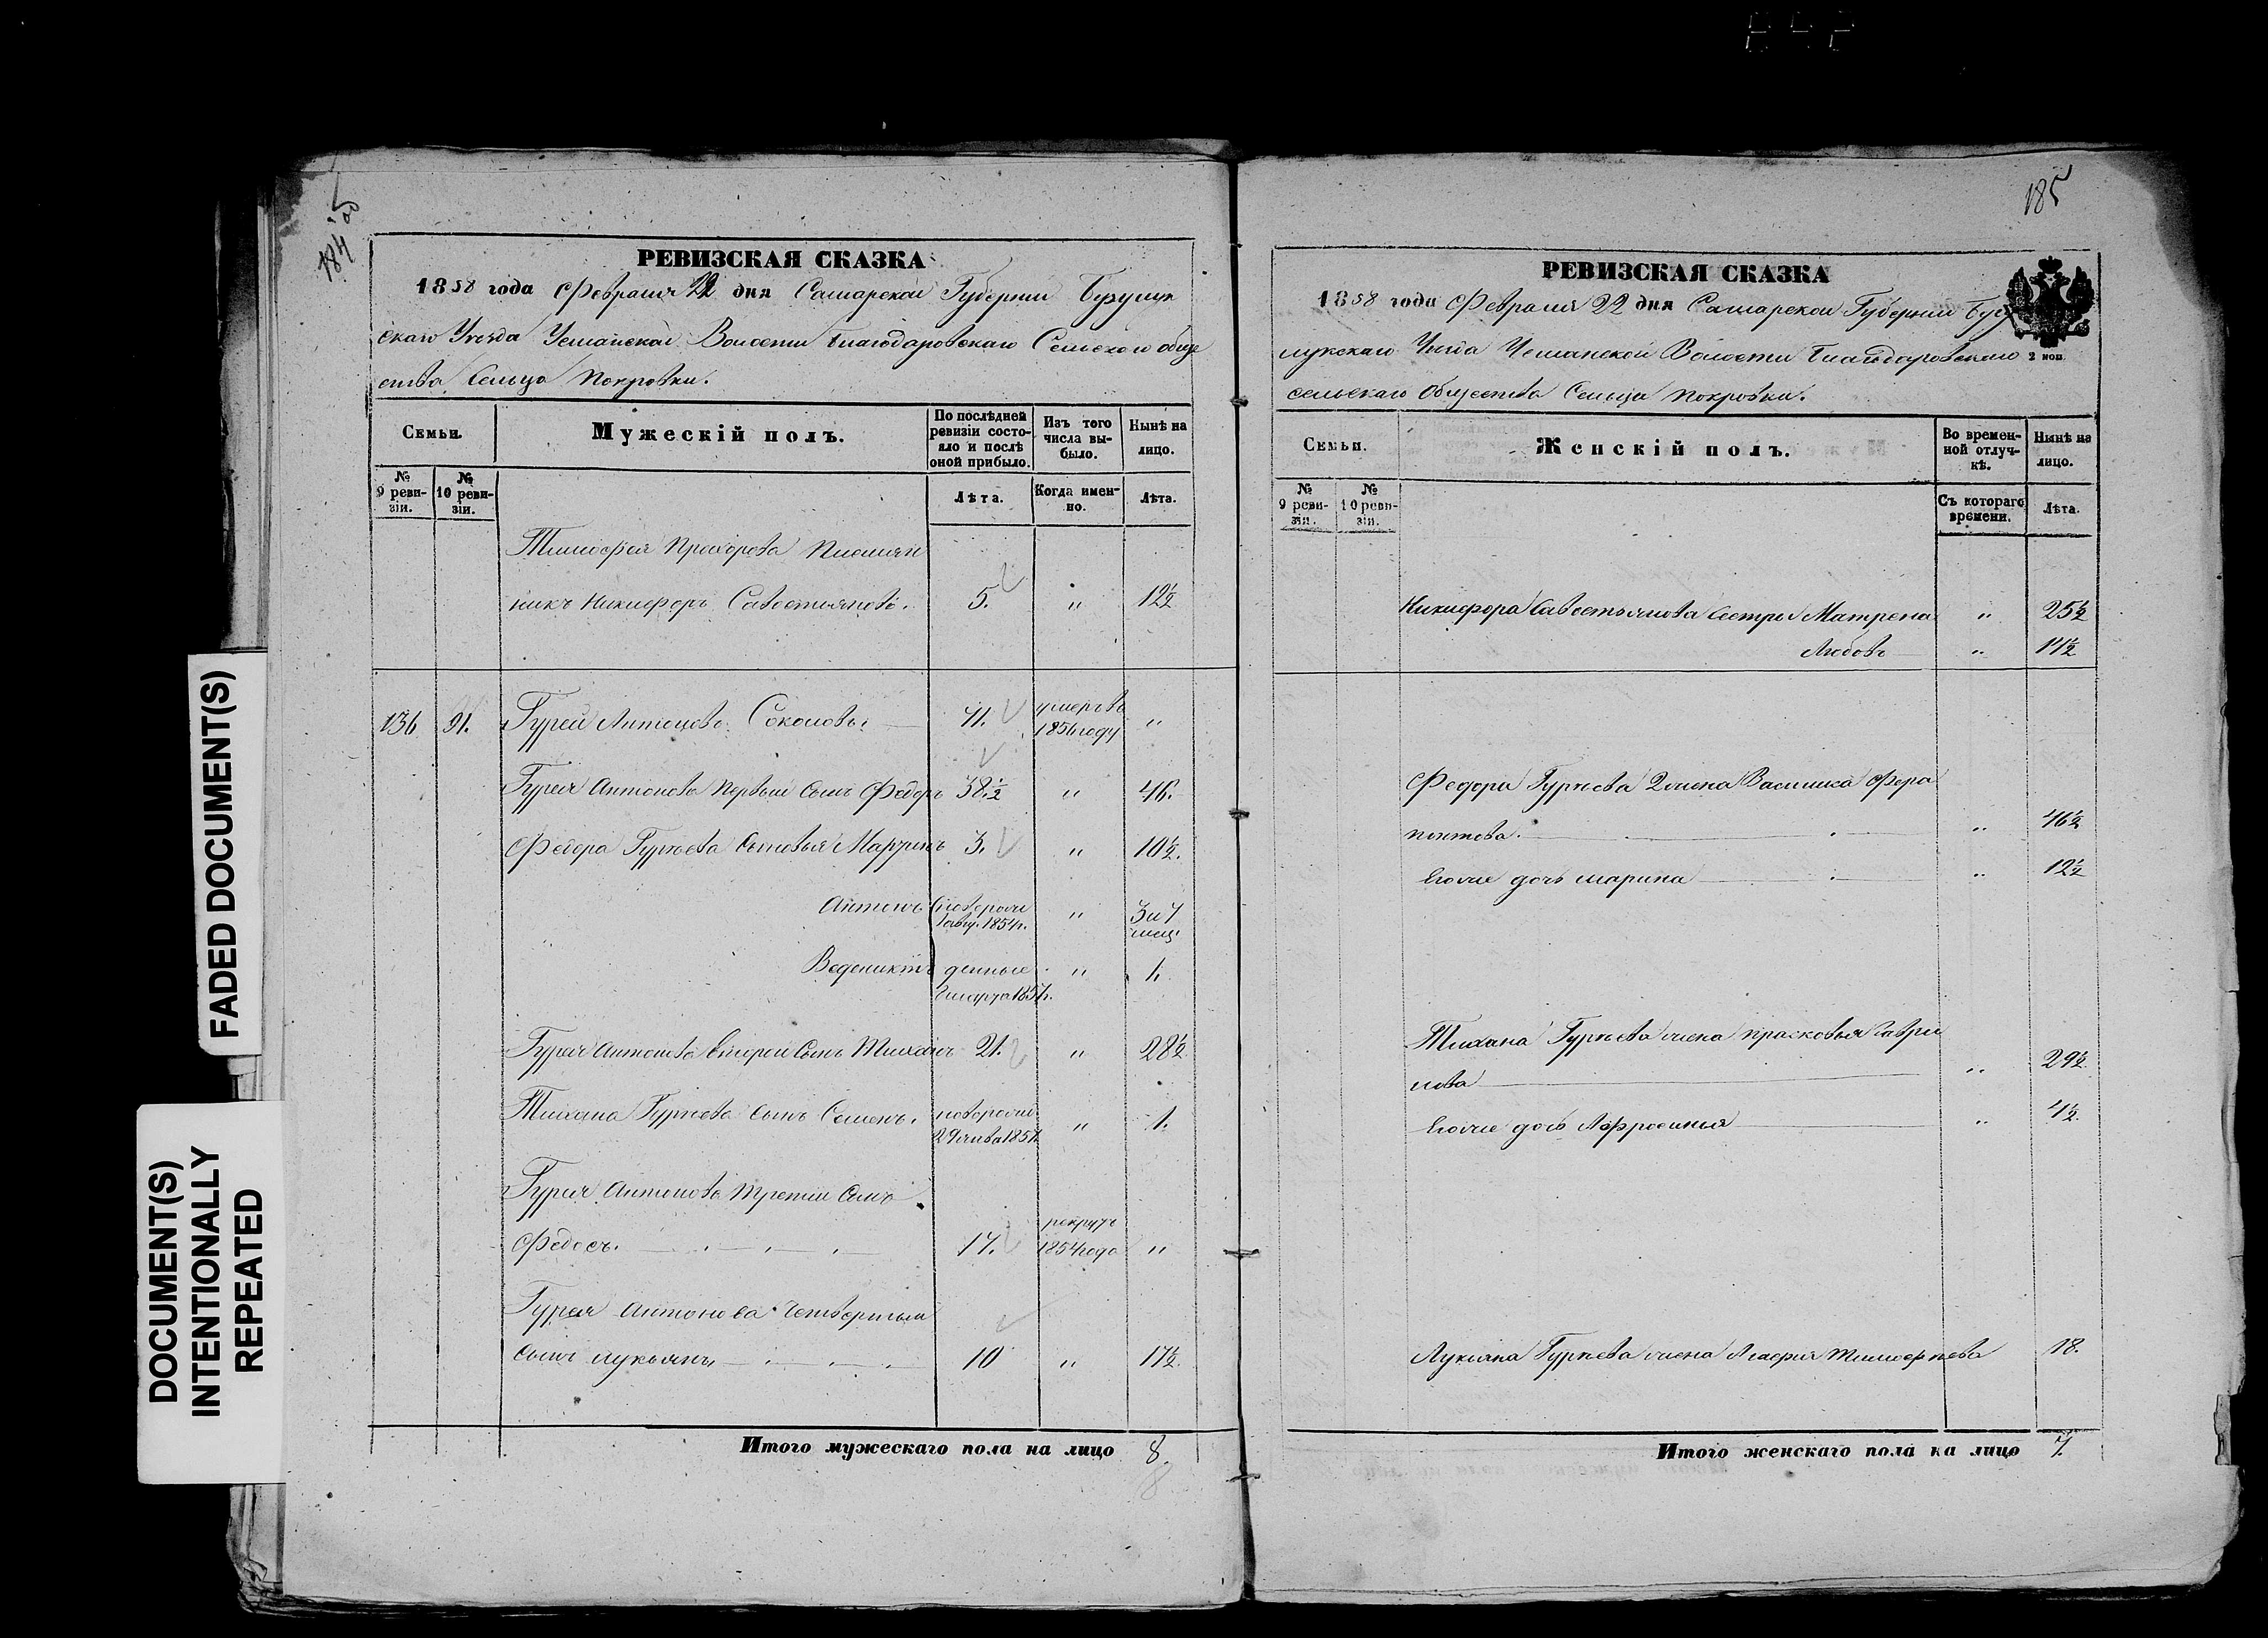 184
185
FADED DOCUMENT(S)
DOCUMENT(S)
INTENTIONALLY
REPEATED
РЕВИЗСКАЯ СКАЗКА
1858 года Февраля 22 дня Самарской Губернии Бузулук
скаго Уезда Усманской Волости Благодаровскаго Сельскаго обще
ства Сельца Покровки.
Семьи.
Мужескій полъ.
По послѣдней ревизіи состо-
яло и послѣ
оной прибыло.
Изъ того
числа вы-
было.
Нынѣ на
лицо.
№
9 реви-
зіи.
№
10 реви-
зіи.
Лѣта.
Когда имен-
но.
Лѣта.
Тимофея Прохорова Племян
никъ Никифоръ Савостьяновъ. 5. " 12½
136 91. Гурей Антоновъ Соколовъ. 41. умеръ въ
1856 году "
Гурея Антонова первый сынъ Федоръ 38.½ " 46.
Федора Гурьева сыновья Мартинъ 3. " 10½.
Антонъ новорож " 3 и 7
1854 г. мец.
Веденихтъ денные " 1.
марта 1857 г.
Гурея Антонова второй сынъ Тиханъ 21. " 28½
Тихана Гурьева сынъ Семенъ. новорожд. " 1.
1857
Гурея Антонова третий сынъ
Федосъ. 17. рекрутъ
1854 года "
Гурея Антонова четвертый
сынъ Лукьянъ 10 " 17½.
Итого мужескаго пола на лицо 8.
8
РЕВИЗСКАЯ СКАЗКА
1858 года Февраля 22 дня Самарской Губернии Бузу
лукскаго Уезда Усманской Волости Благодаровскаго
сельскаго Общества Сельца Покровки.
2 коп.
Семьи.
Женскій полъ.
Во времен-
ной отлуч-
кѣ.
Нынѣ на
лицо.
№
9 реви-
зіи.
№
10 реви-
зіи.
Съ котораго
времени.
Лѣта.
Никифора Савостьянова сестры Матрена " 25½
Любовь " 11½
Федора Гурьева 2 жена Василиса Фера
понтова. " 46½
Егоже дочь Марина " 12½
Тихана Гурьева жена Прасковья Гаври
лова " 29½.
Егоже дочь Афросинья " 4½.
Лукьяна Гурьева жена Тимофеева 18.
Итого женскаго пола на лицо 7.